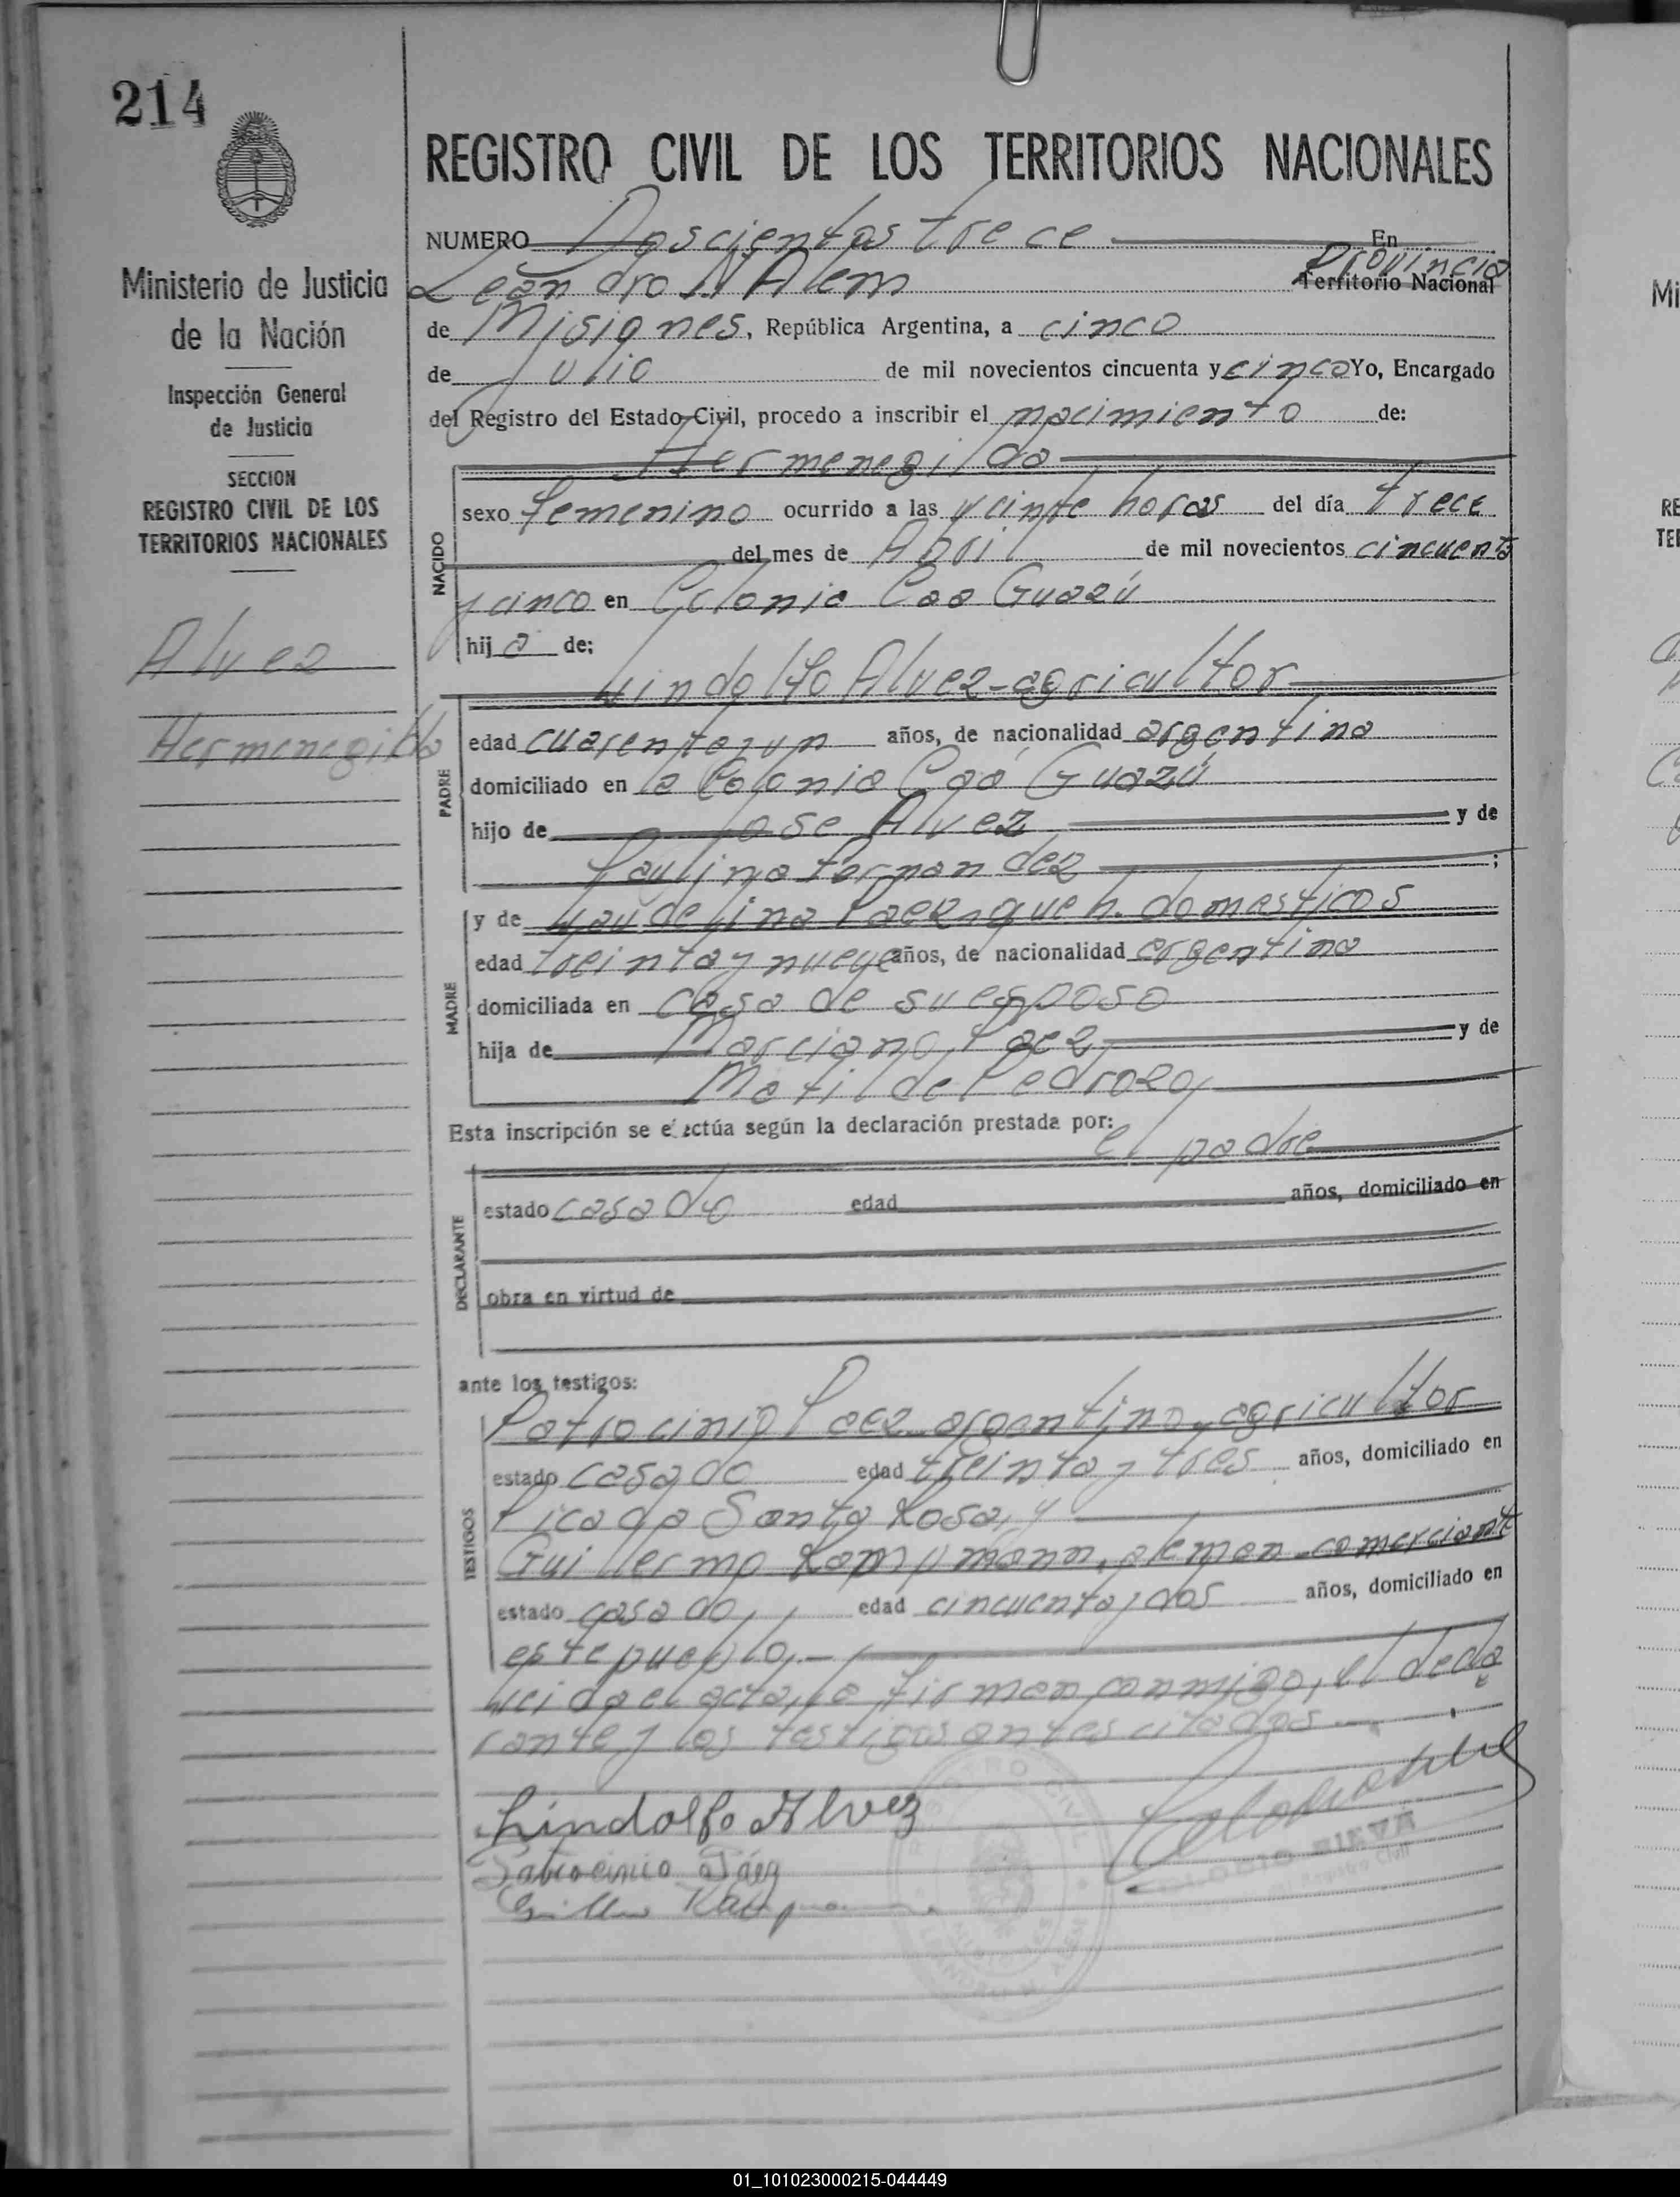 214
REGISTRO CIVIL DE LOS TERRITORIOS NACIONALES
NUMERO Doscientos trece En
Leandro N Alem Provincia Territorio Nacional
de Misiones, República Argentina, a cinco
de Julio de mil novecientos cincuenta y cinco Yo, Encargado
del Registro del Estado Civil, procedo a inscribir el nacimiento de:
Hermenegilda
NACIDO
sexo femenino ocurrido a las veinte horas del día trece
del mes de Abril de mil novecientos cincuenta
y cinco en Colonia Caa Guazú
hij a de:
Lindolfo Alvez - agricultor
PADRE
edad cuarenta y un años, de nacionalidad argentina
domiciliado en la Colonia Caá Guazú
hijo de Jose Alvez y de
Paulina Fernandez ;
MADRE
y de Paez, queh. domesticos
edad treinta y nueve años, de nacionalidad argentina
domiciliada en casa de su esposo
hija de Marciano Paez, y de
Matilde Pedrozo,
Esta inscripción se efectúa según la declaración prestada por:
el padre
DECLARANTE
estado casado edad años, domiciliado en
obra en virtud de
ante los testigos:
TESTIGOS
Patrocinio Paez, argentino, agricultor
estado casado edad treinta y tres años, domiciliado en
Picada Santa Rosa, y
Guillermo Kampmann, aleman - comerciante
estado casado, edad cincuenta y dos años, domiciliado en
este pueblo.-
Leida el acta, la firman conmigo, el decla
rante y los testigos antes citados
Lindolfo Alvez
Patrocinio Páez
Guillermo Kampmann
REGISTRO CIVIL
Ministerio de Justicia
de la Nación
Inspección General
de Justicia
SECCION
REGISTRO CIVIL DE LOS
TERRITORIOS NACIONALES
Alvez
Hermenegilda
01_101023000215-044449